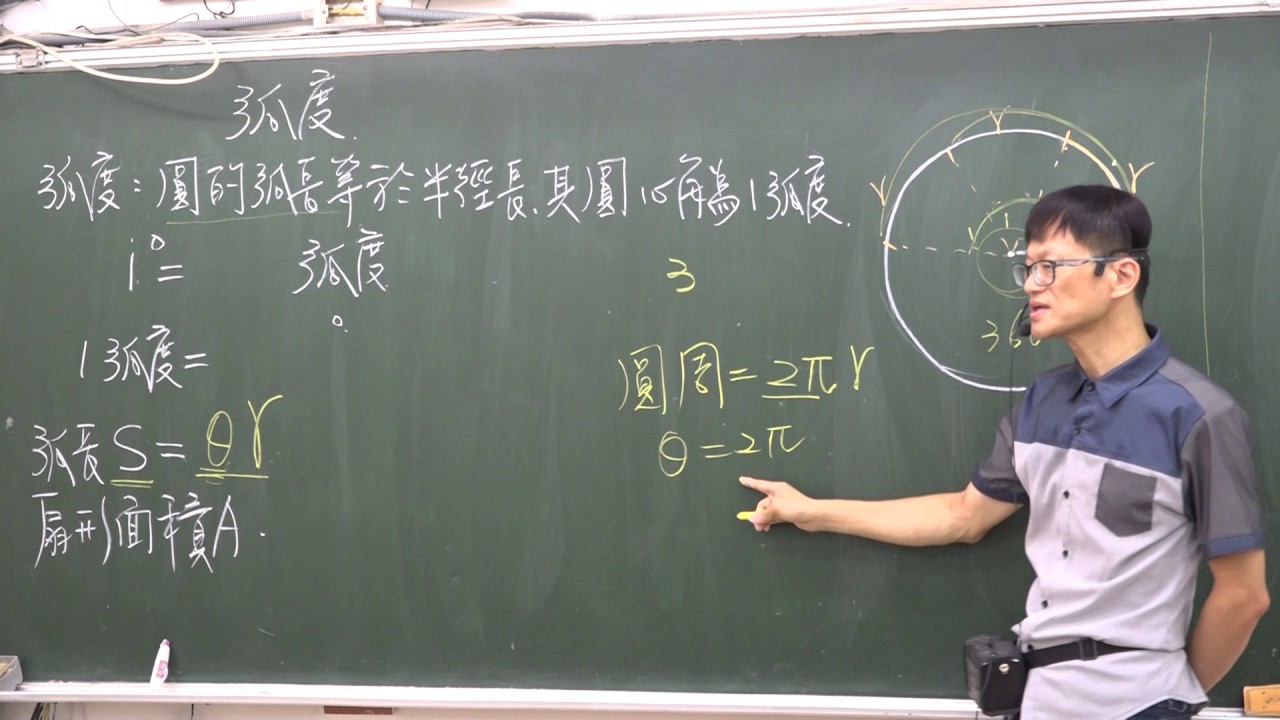 弧度.
弧度：圓的弧長等於半徑長,其圓心角為1弧度.
1°= 弧度
。
1弧度=
弧長 S = θr
扇形面積A.
3
圓周=2πr
θ=2π
r
r
r
r
r
r
36